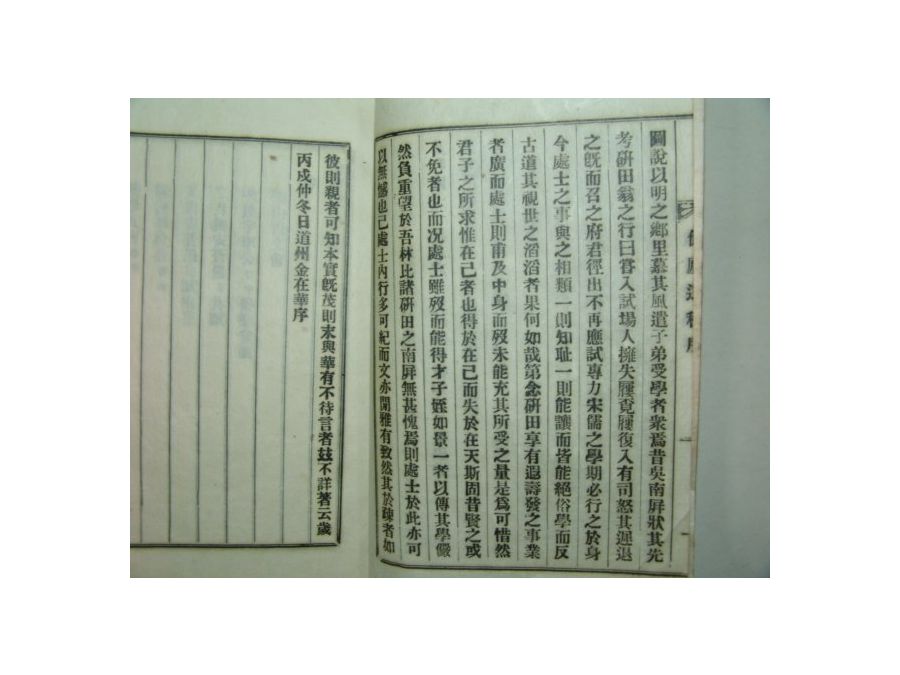 圖說以明之鄉里慕其風遣子弟受學者衆焉昔吳南屛狀其先
考硏田翁之行曰嘗入試場人擁失屨覓屨復入有司怒其遲退
之旣而召之府君徑出不再應試專力宋儒之學期必行之於身
今處士之事與之相類一則知耻一則能讓而皆能絕俗學而反
古道其視世之滔滔者果何如哉第念硏田享有遐壽發之事業
者廣而處士則甫及中身而歿未能充其所受之量是爲可惜然
君子之所求惟在己者也得於在己而失於在天斯固昔賢之或
不免者也而况處士雖歿而能得才子姪如景一者以傳其學儼
然負重望於吾林比諸硏田之南屛無甚愧焉則處士於此亦可
以無憾也已處士內行多可紀而文亦閒雅有致然其於疎者如
彼則親者可知本實旣茂則末與華有不待言者玆不詳著云歲
丙戌仲冬日道州金在華序